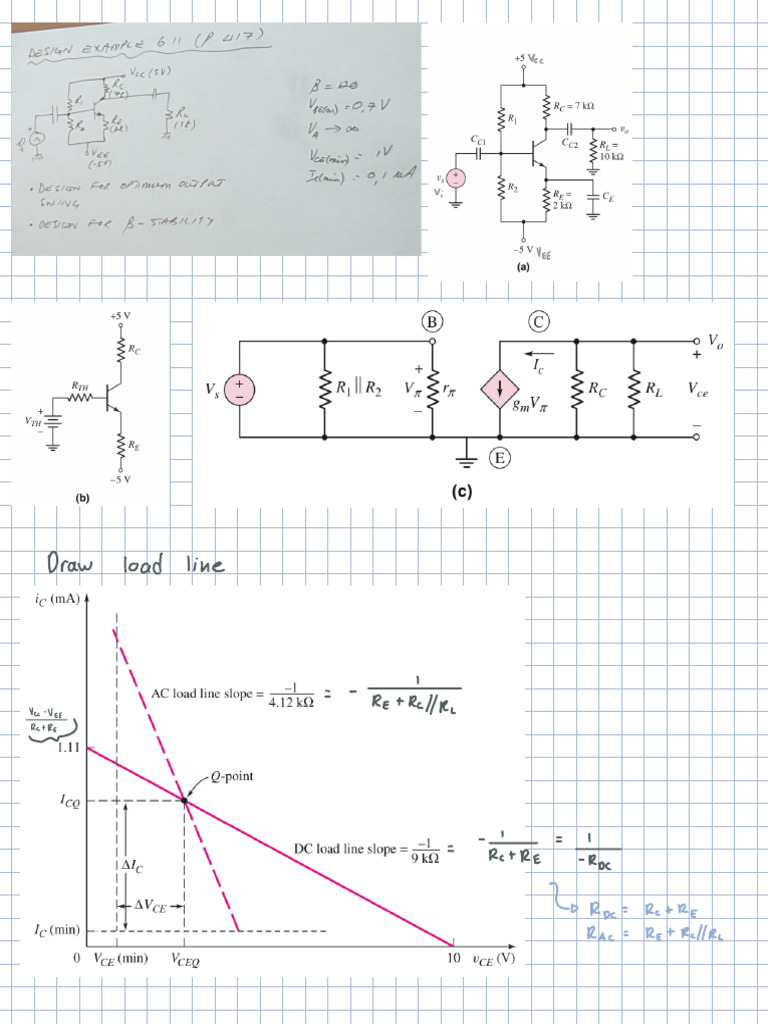 DESIGN EXAMPLE 6.11 (P. 417)
VCC (5V)
RC
(7k)
R1
RE
(2k)
RL
VEE
(-5V)
β = 120
VBE(on) = 0,7 V
VA → ∞
VCE(min) = 1V
IC(min) = 0,1 mA
• DESIGN FOR OPTIMUM OUTPUT
SWING
• DESIGN FOR β-STABILITY
+5 V VCC
RC = 7 kΩ
R1
CC1
CC2
vo
RL =
10 kΩ
vs
Vs
R2
RE =
2 kΩ
CE
−5 V VEE
(a)
+5 V
RC
RTH
VTH
RE
−5 V
(b)
B
C
Vo
+
Vs
R1 || R2
+
Vπ
−
rπ
IC
gmVπ
RC
RL
Vce
−
E
(c)
Draw load line
iC (mA)
AC load line slope = −1/4.12 kΩ = - 1/(RE + RC//RL)
(VCC - VEE)/(RC + RE)
1.11
Q-point
ICQ
DC load line slope = −1/9 kΩ = - 1/(RC + RE) = 1/-RDC
ΔIC
ΔVCE
RDC = RC + RE
RAC = RE + RC//RL
IC (min)
0 VCE (min) VCEQ 10 vCE (V)